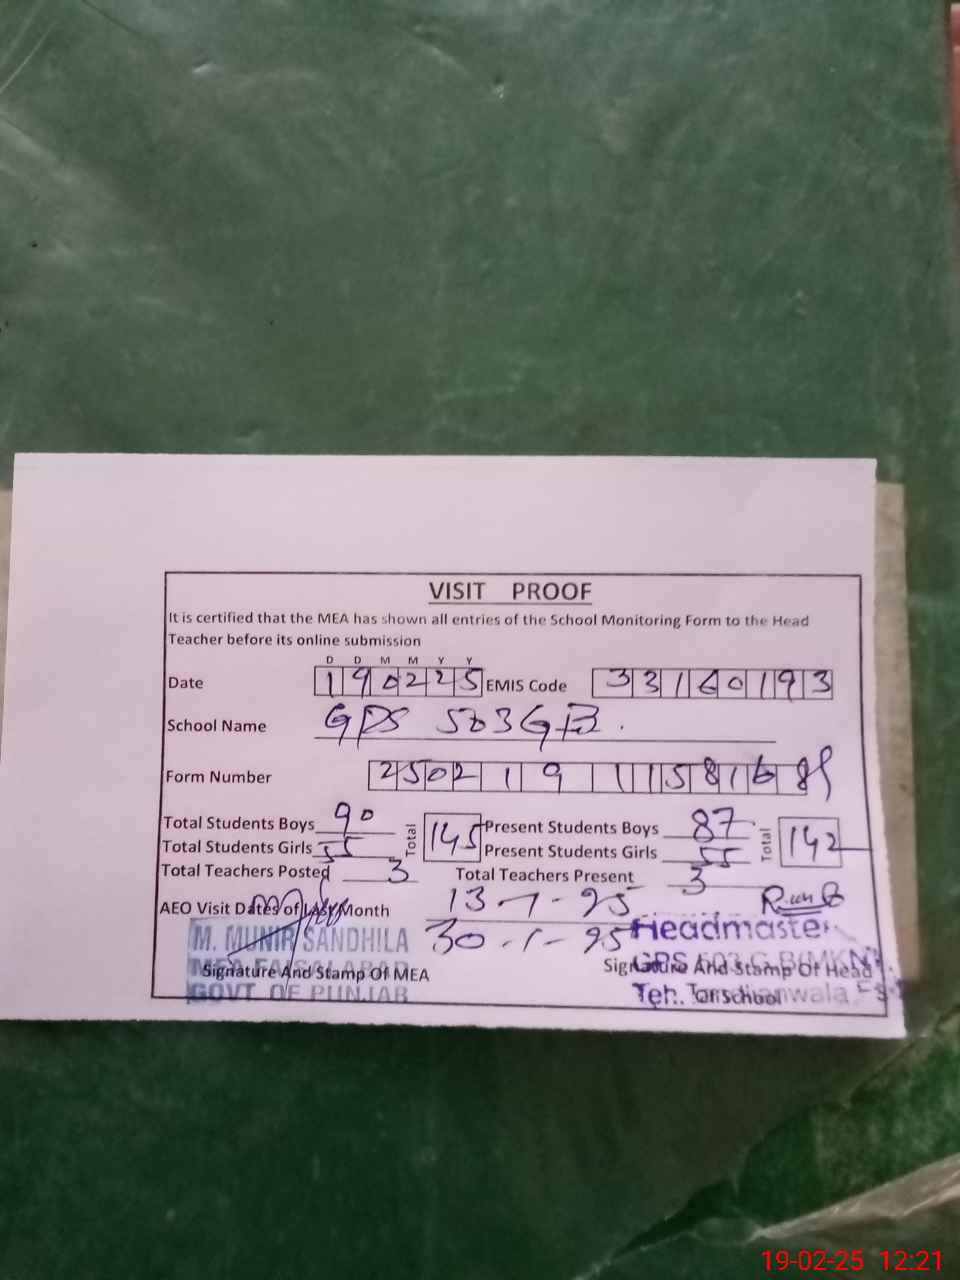 VISIT PROOF
It is certified that the MEA has shown all entries of the School Monitoring Form to the Head
Teacher before its online submission
D D M M Y Y
Date 190225 EMIS Code 33160193
School Name GPS 503 GB.
Form Number 25021911581689
Total Students Boys 90 Total 145 Present Students Boys 87 Total 142
Total Students Girls 55 Present Students Girls 55
Total Teachers Posted 3 Total Teachers Present 3
AEO Visit Dates of Last Month 13-1-25
30-1-25
M. MUNIR SANDHILA
MEA FAISALABAD
GOVT. OF PUNJAB
Signature And Stamp Of MEA
Headmaster
GPS 503 G.B(MKN)
Teh. Tandlianwala
Signature And Stamp Of Head
Of School
19-02-25 12:21